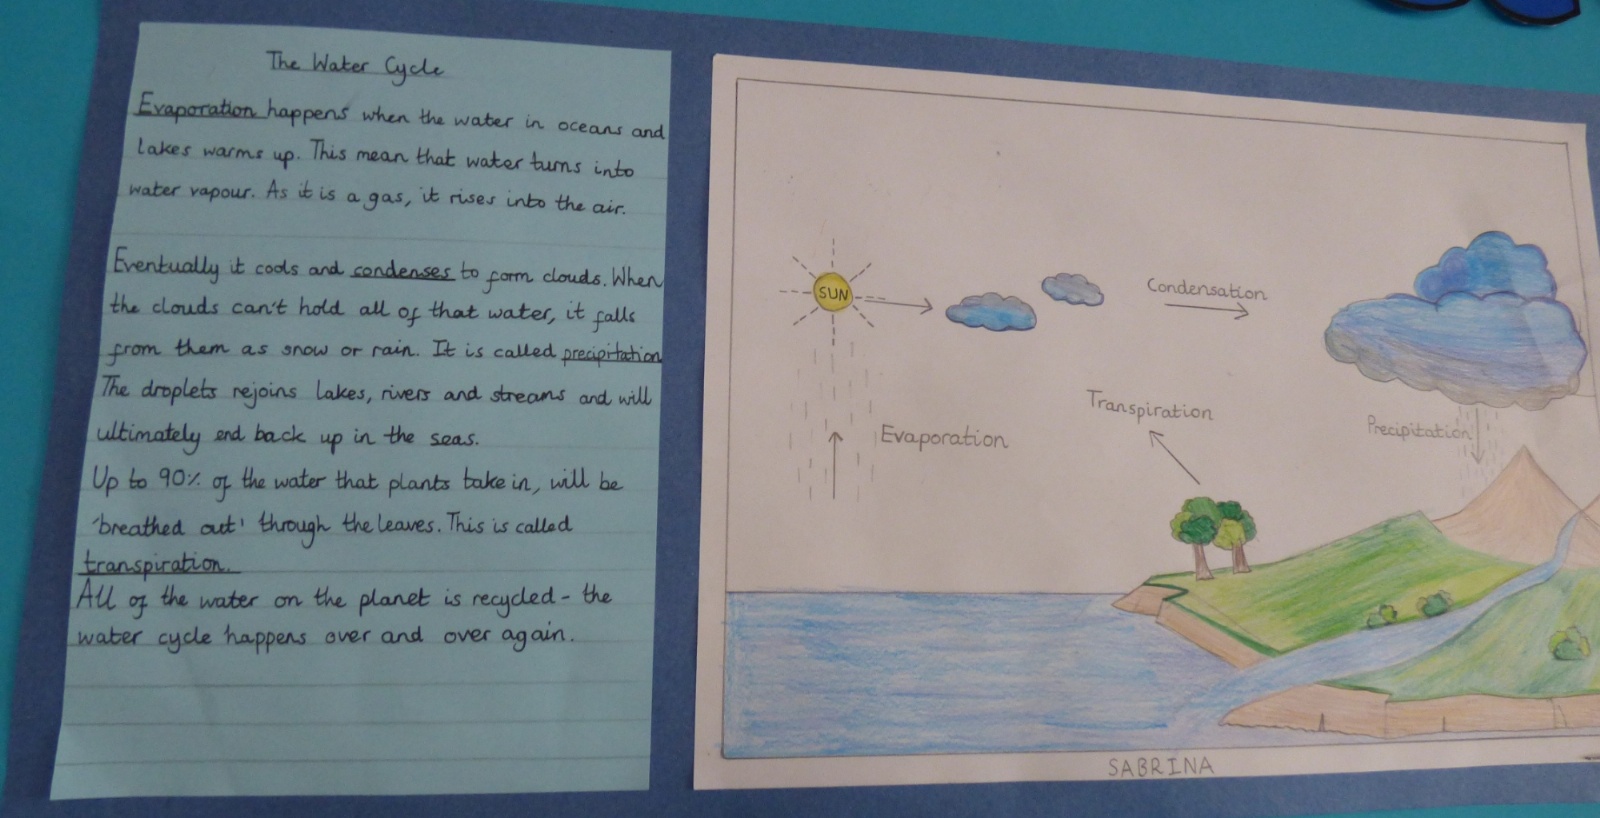 The Water Cycle
Evaporation happens when the water in oceans and
lakes warms up. This mean that water turns into
water vapour. As it is a gas, it rises into the air.
Eventually it cools and condenses to form clouds. When
the clouds can't hold all of that water, it falls
from them as snow or rain. It is called precipitation
The droplets rejoins lakes, rivers and streams and will
ultimately end back up in the seas.
Up to 90% of the water that plants take in, will be
'breathed out' through the leaves. This is called
transpiration.
All of the water on the planet is recycled - the
water cycle happens over and over again.
SUN
Condensation
Transpiration
Precipitation
Evaporation
SABRINA